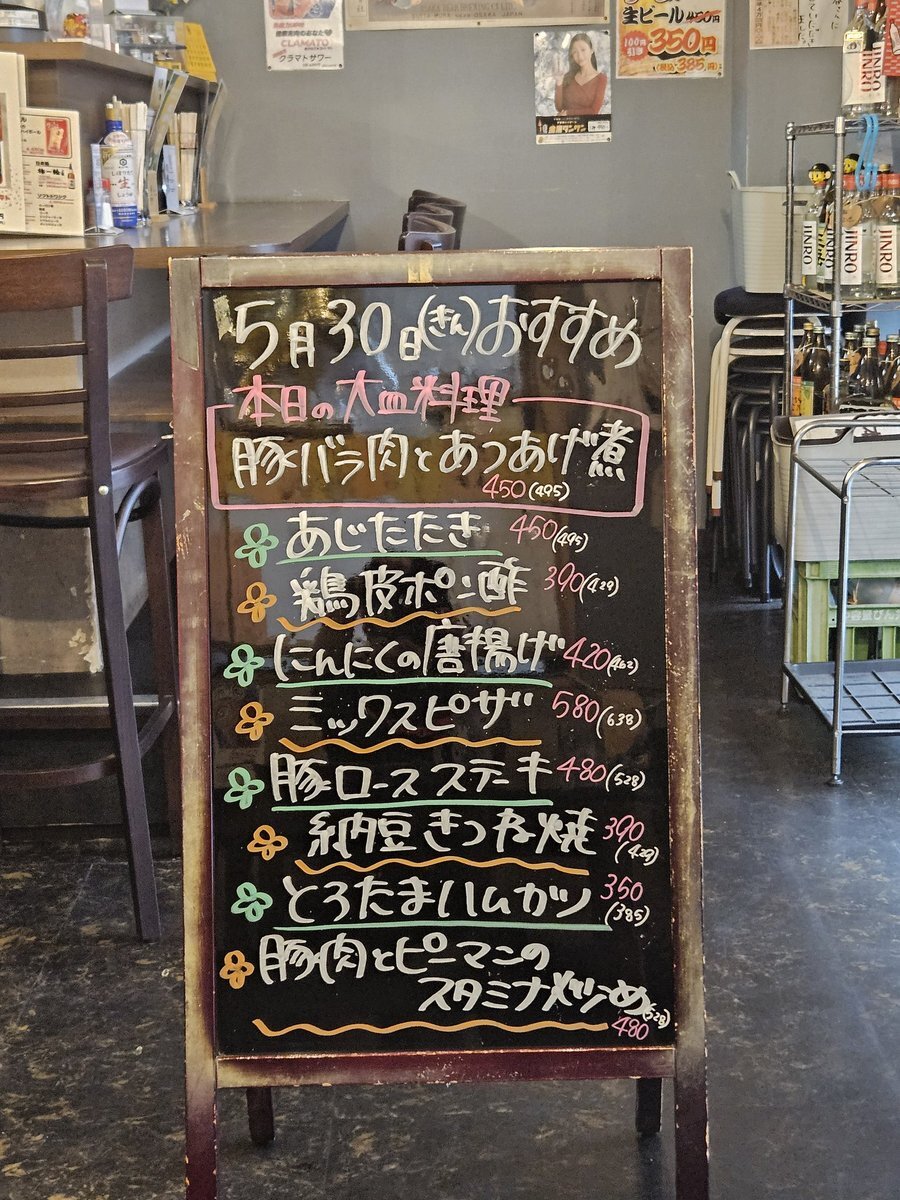 CLAMATO
クラマトサワー
生ビール 450円
100円引き
350円
(税込 385円)
JINRO
JINRO
JINRO
JINRO
生
5月30日(きん)おすすめ
本日の大皿料理
豚バラ肉とあつあげ煮
450(495)
あじたたき 450(495)
鶏皮ポン酢 390(429)
にんにくの唐揚げ 420(462)
ミックスピザ 580(638)
豚ロースステーキ 480(528)
納豆きつね焼 390(429)
とろたまハムカツ 350(385)
豚肉とピーマンの
スタミナ炒め(528)
480